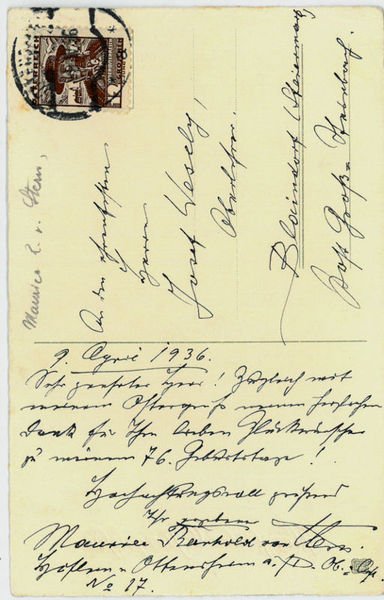 ÖSTERREICH
Maurice R. v. Stern,
An den
Herrn
Josef Vesely,
Oberlehrer
Blaindorf (Steiermark)
Post Groß-Steinbach.
9. April 1936.
Sehr geehrter Herr! Zugleich mit
meinem Ostergruß meinen herzlichen
Dank für Ihre lieben Glückwünsche
zu meinem 76. Geburtstage!
Hochachtungsvoll grüßend
Ihr ergebener
Maurice Reinhold von Stern.
Ottensheim a. d. D. Ob. Öst.
No 17.